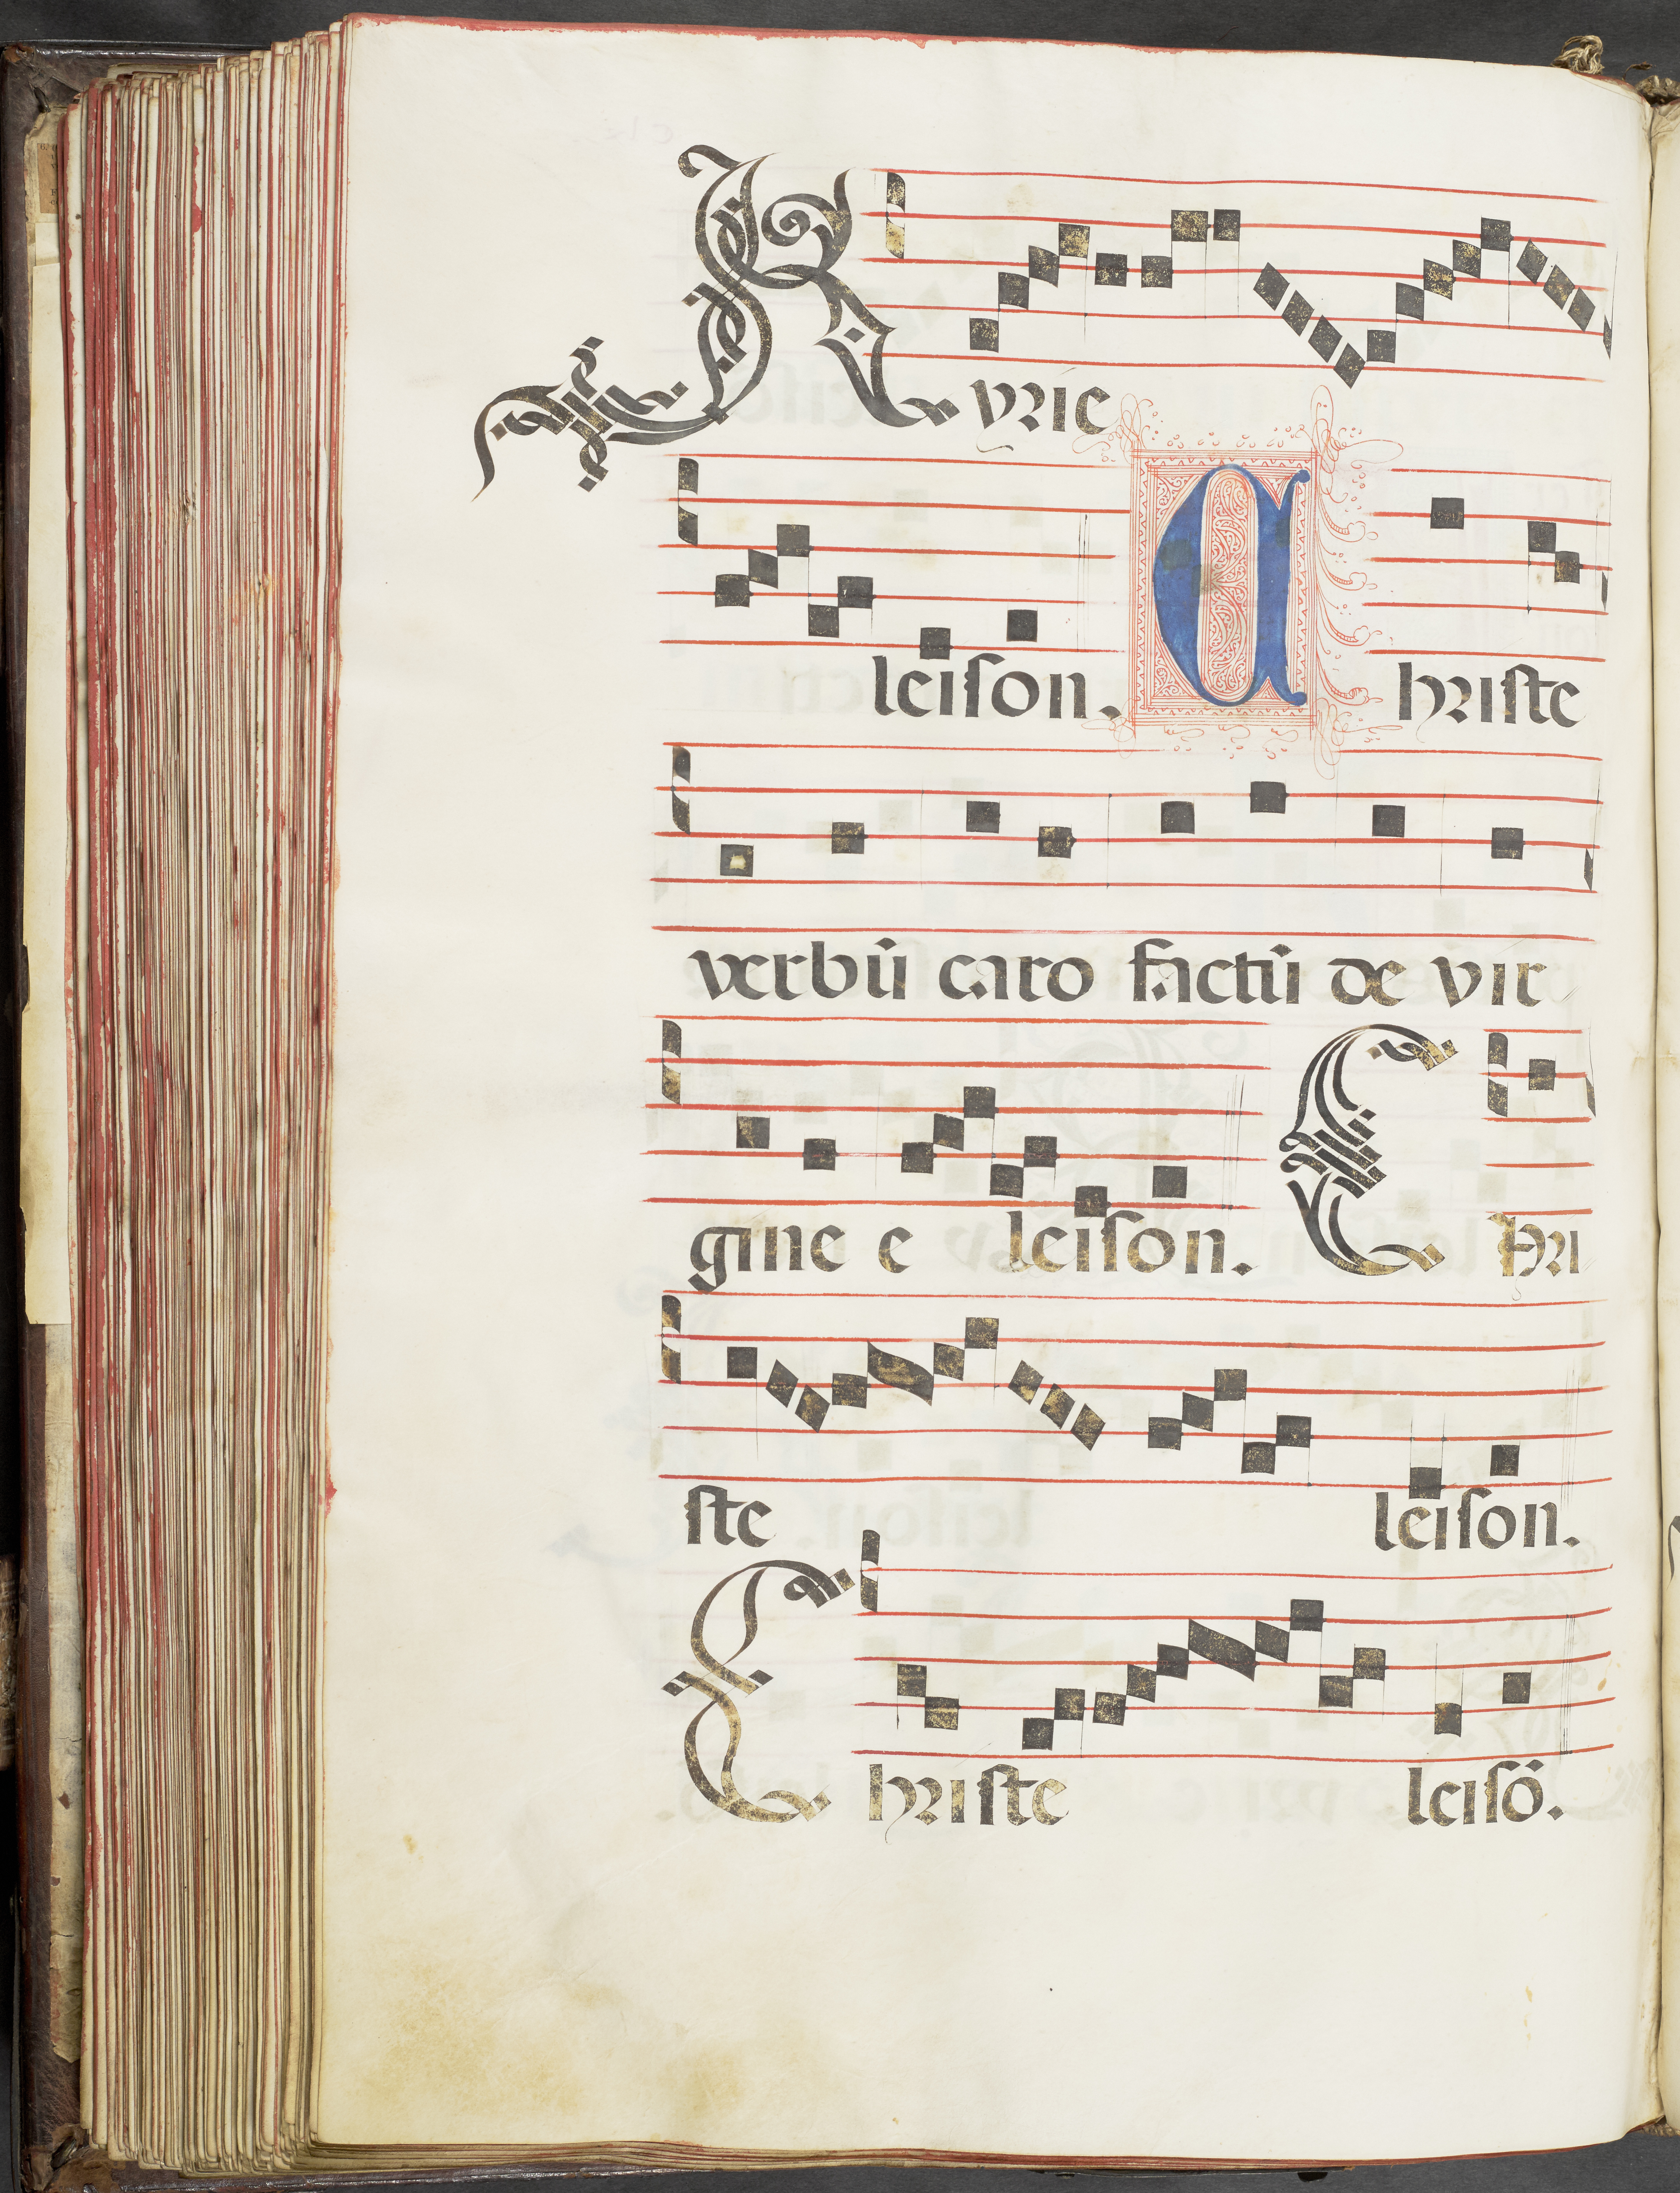 Kyrie
leiſon. Chriſte
verbū caro factū de vir
gine e leiſon. Chri
ſte leiſon.
Chriſte leiſō.